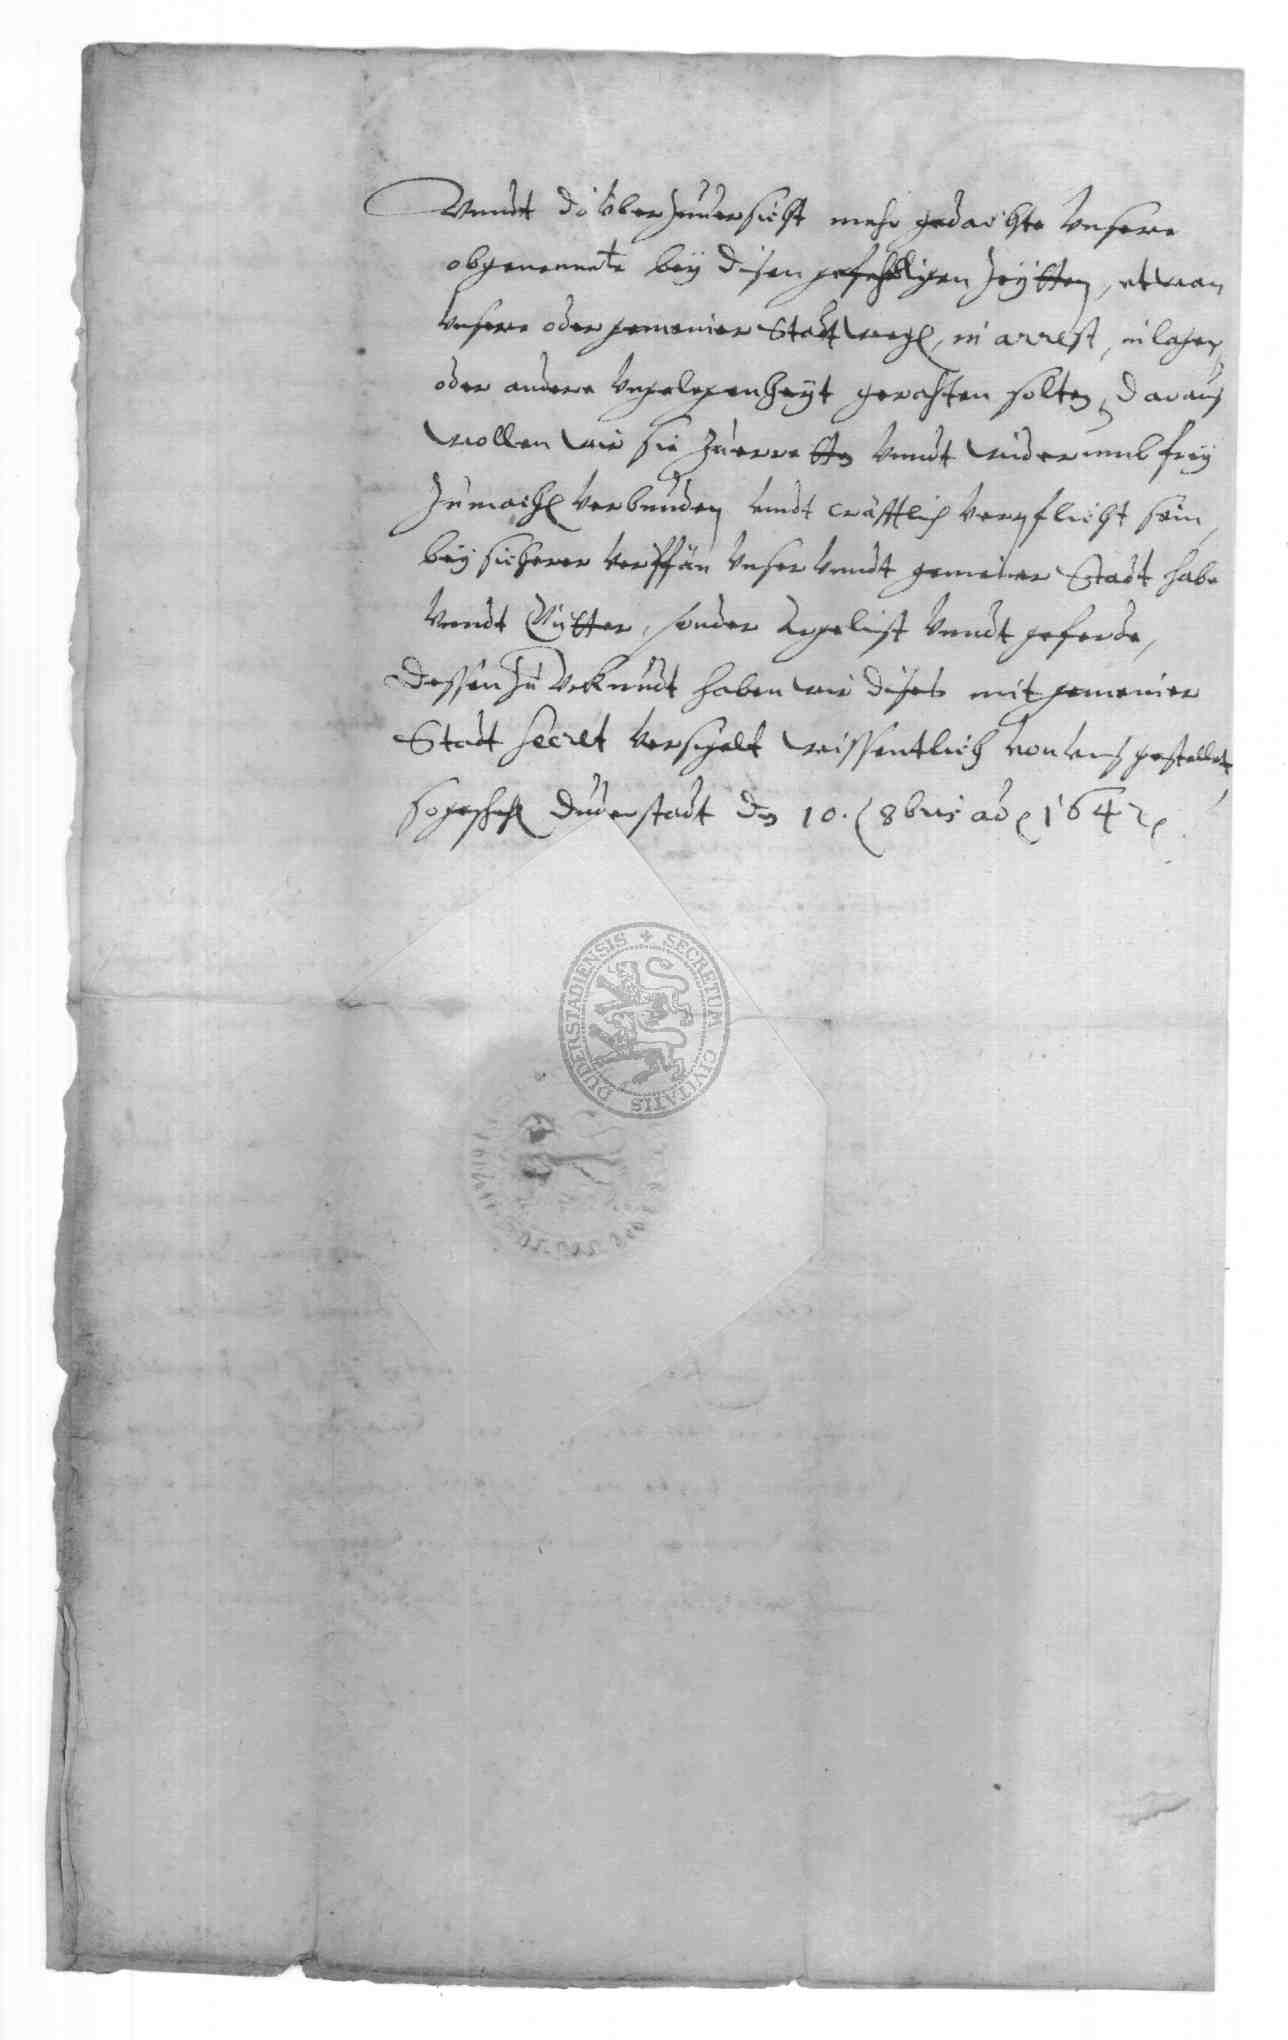 Vnndt do vber zuuersicht mehr gedachte Vnsere
obgenennete bey disen gefehrligen Zeÿtten, etwan
Vnsere oder gemeiner Stadt wegen, in arrest, inlager,
oder andere Vngelegenheÿt gerahten solten, Daraus
wollen wir sie zuerretten Vnndt widerumb freÿ
Zumachen Verbunden Vndt cräfftlich Verpflicht sein,
beÿ sicherer Vnser Vnndt gemeiner Stadt habe
Vnndt Gütter, sonder Argelist Vnndt geferde,
Dessen zu Vrkundt haben wir dises mit gemeiner
Stadt secret Versigelt wissentlich von Vns gestellet,
so geschehen Duderstadt den 10. 8bris ao 164
SECRETUM CIVITATIS DUDERSTADIENSIS